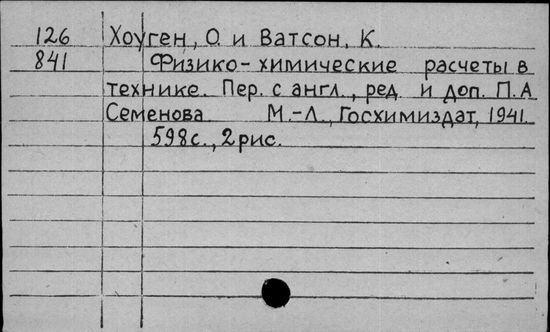 126 Хоуген, О. и Ватсон, К.
841 Физико-химические расчеты в
технике. Пер. с англ., ред. и доп. П.А
Семенова. М.-Л., Госхимиздат, 1941.
598с., 2рис.